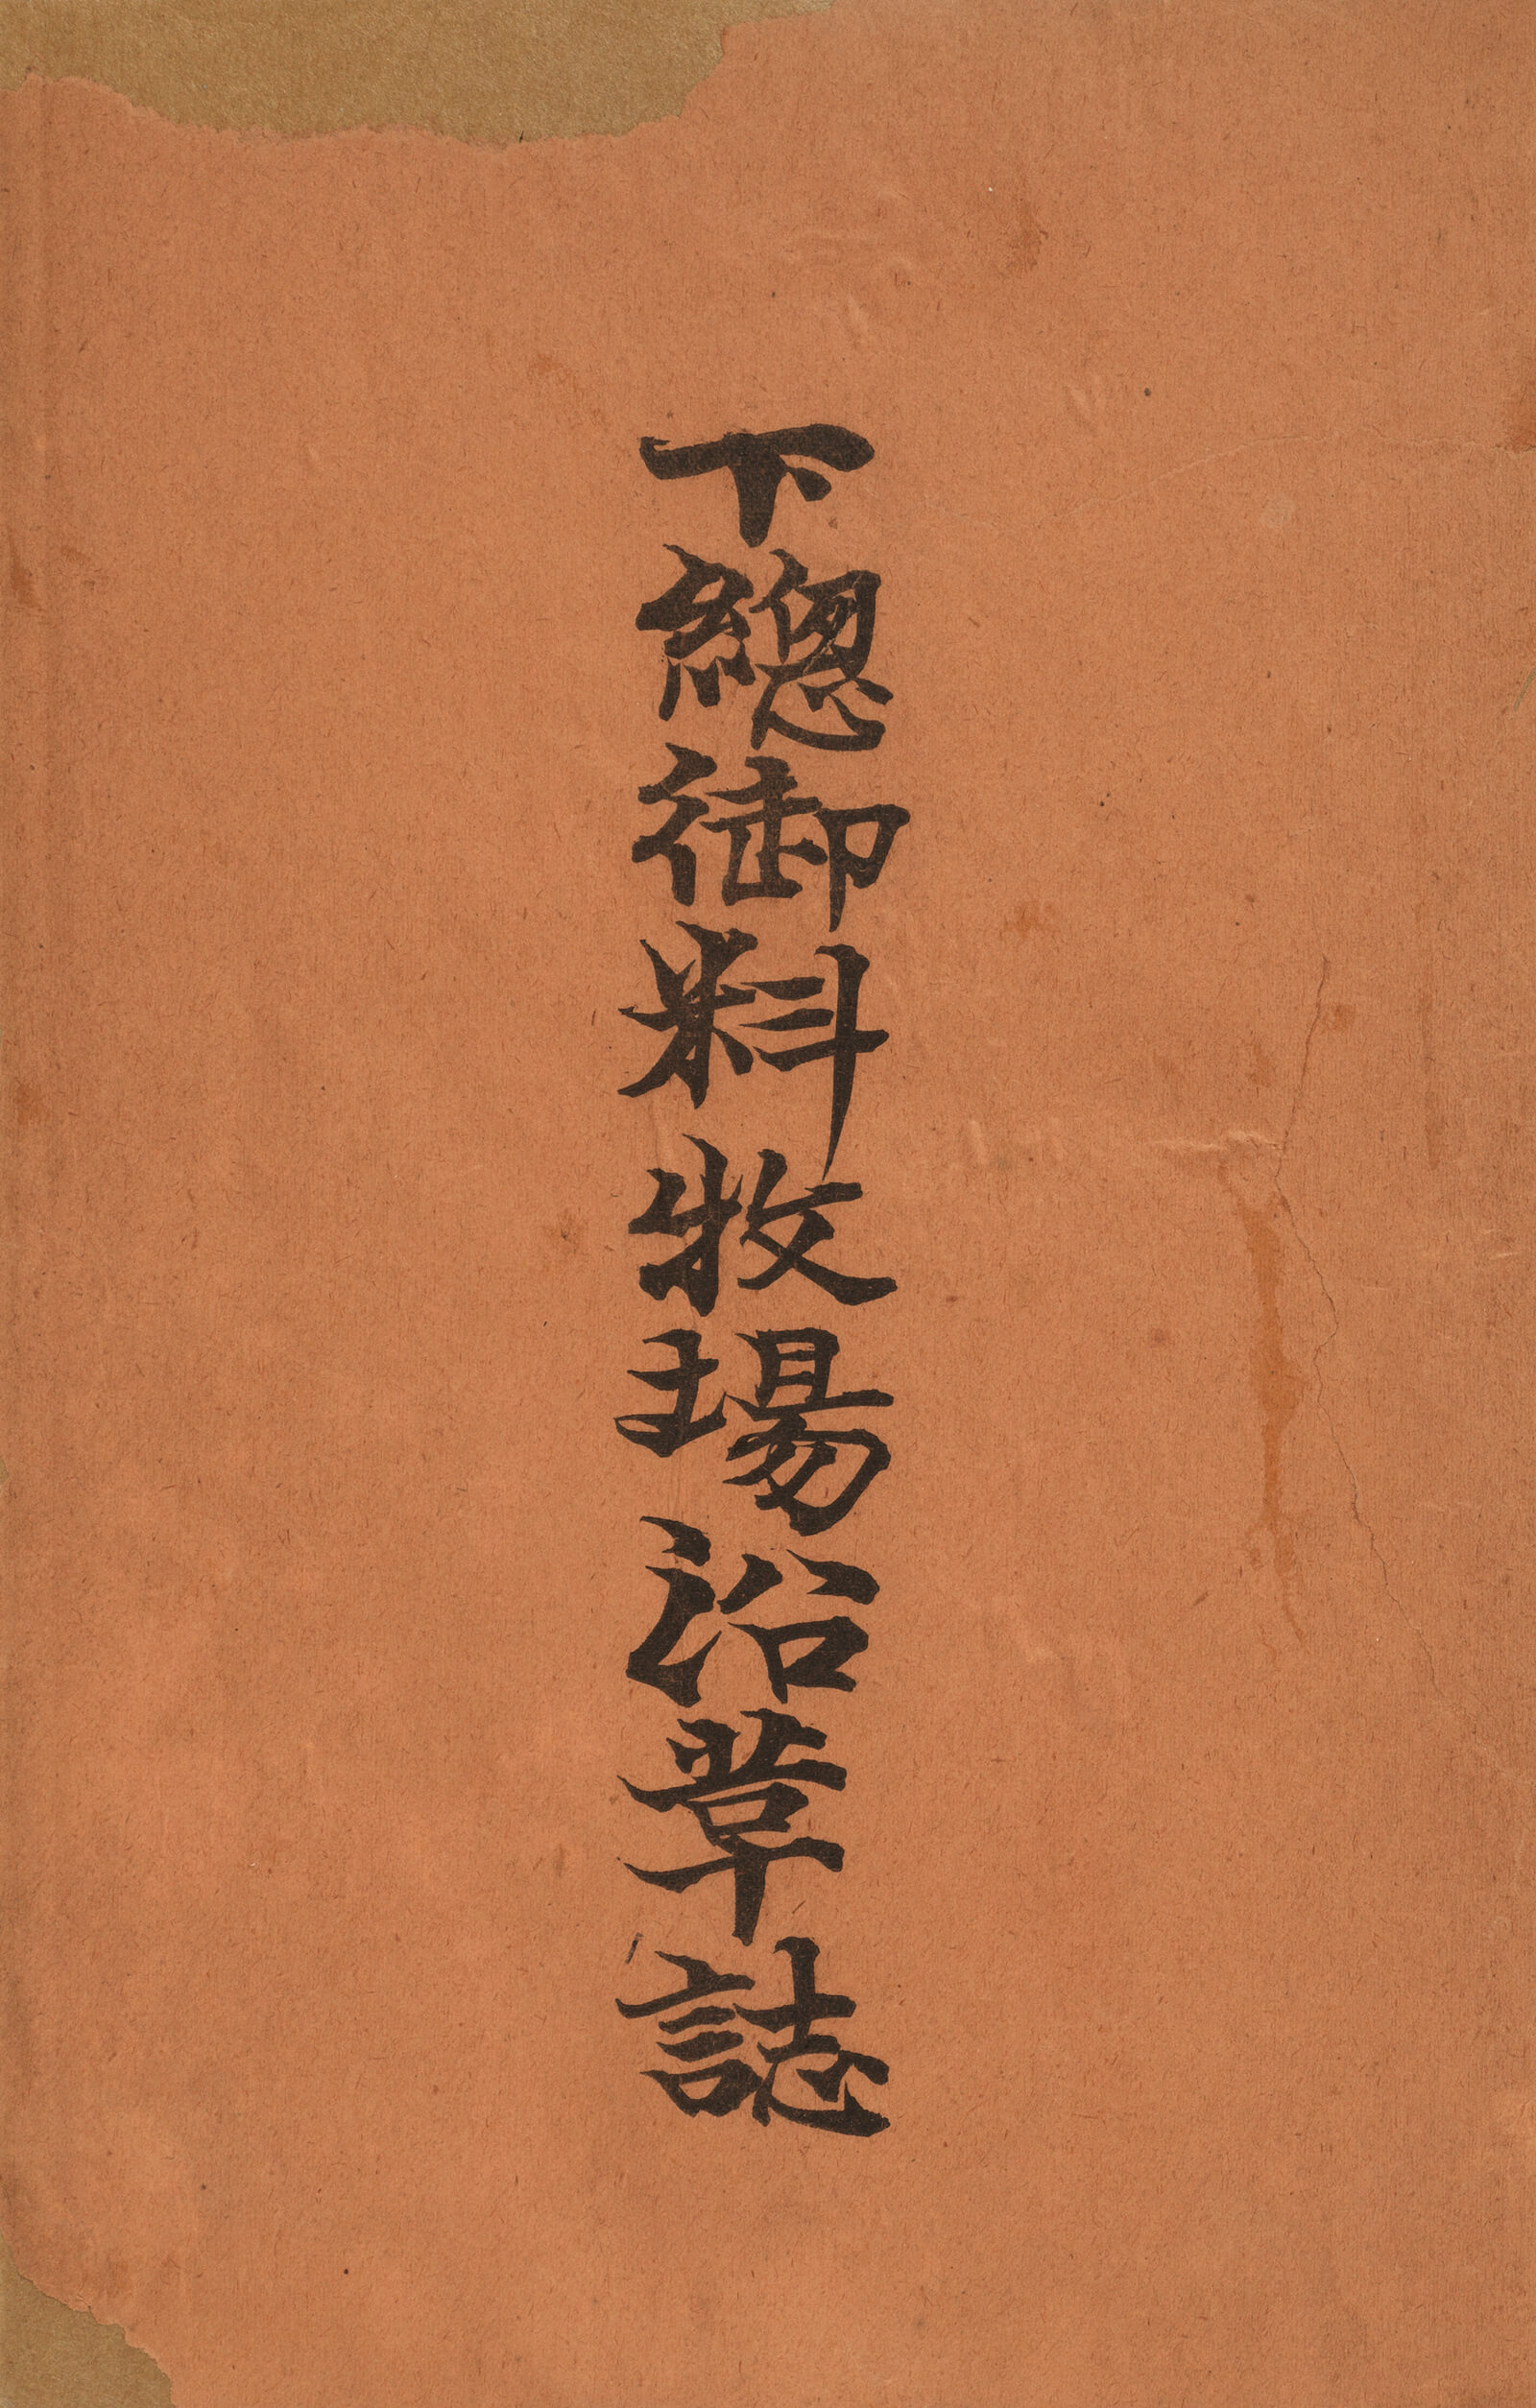 下總御料牧場沿革誌